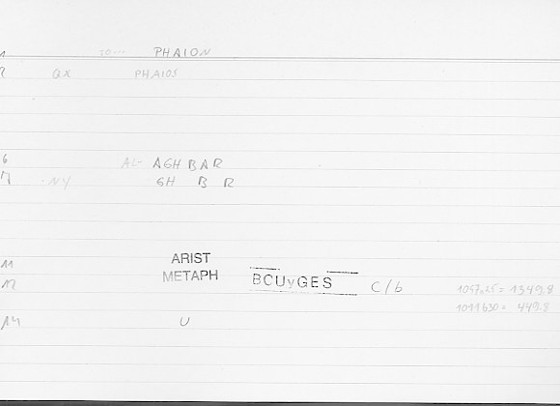 PHAION
QX PHAIOS
AL- AGHBAR
NY GH B R
ARIST
METAPH BCUyGES C/b
1057b25 = 1349.8
1011b30 = 449.8
U